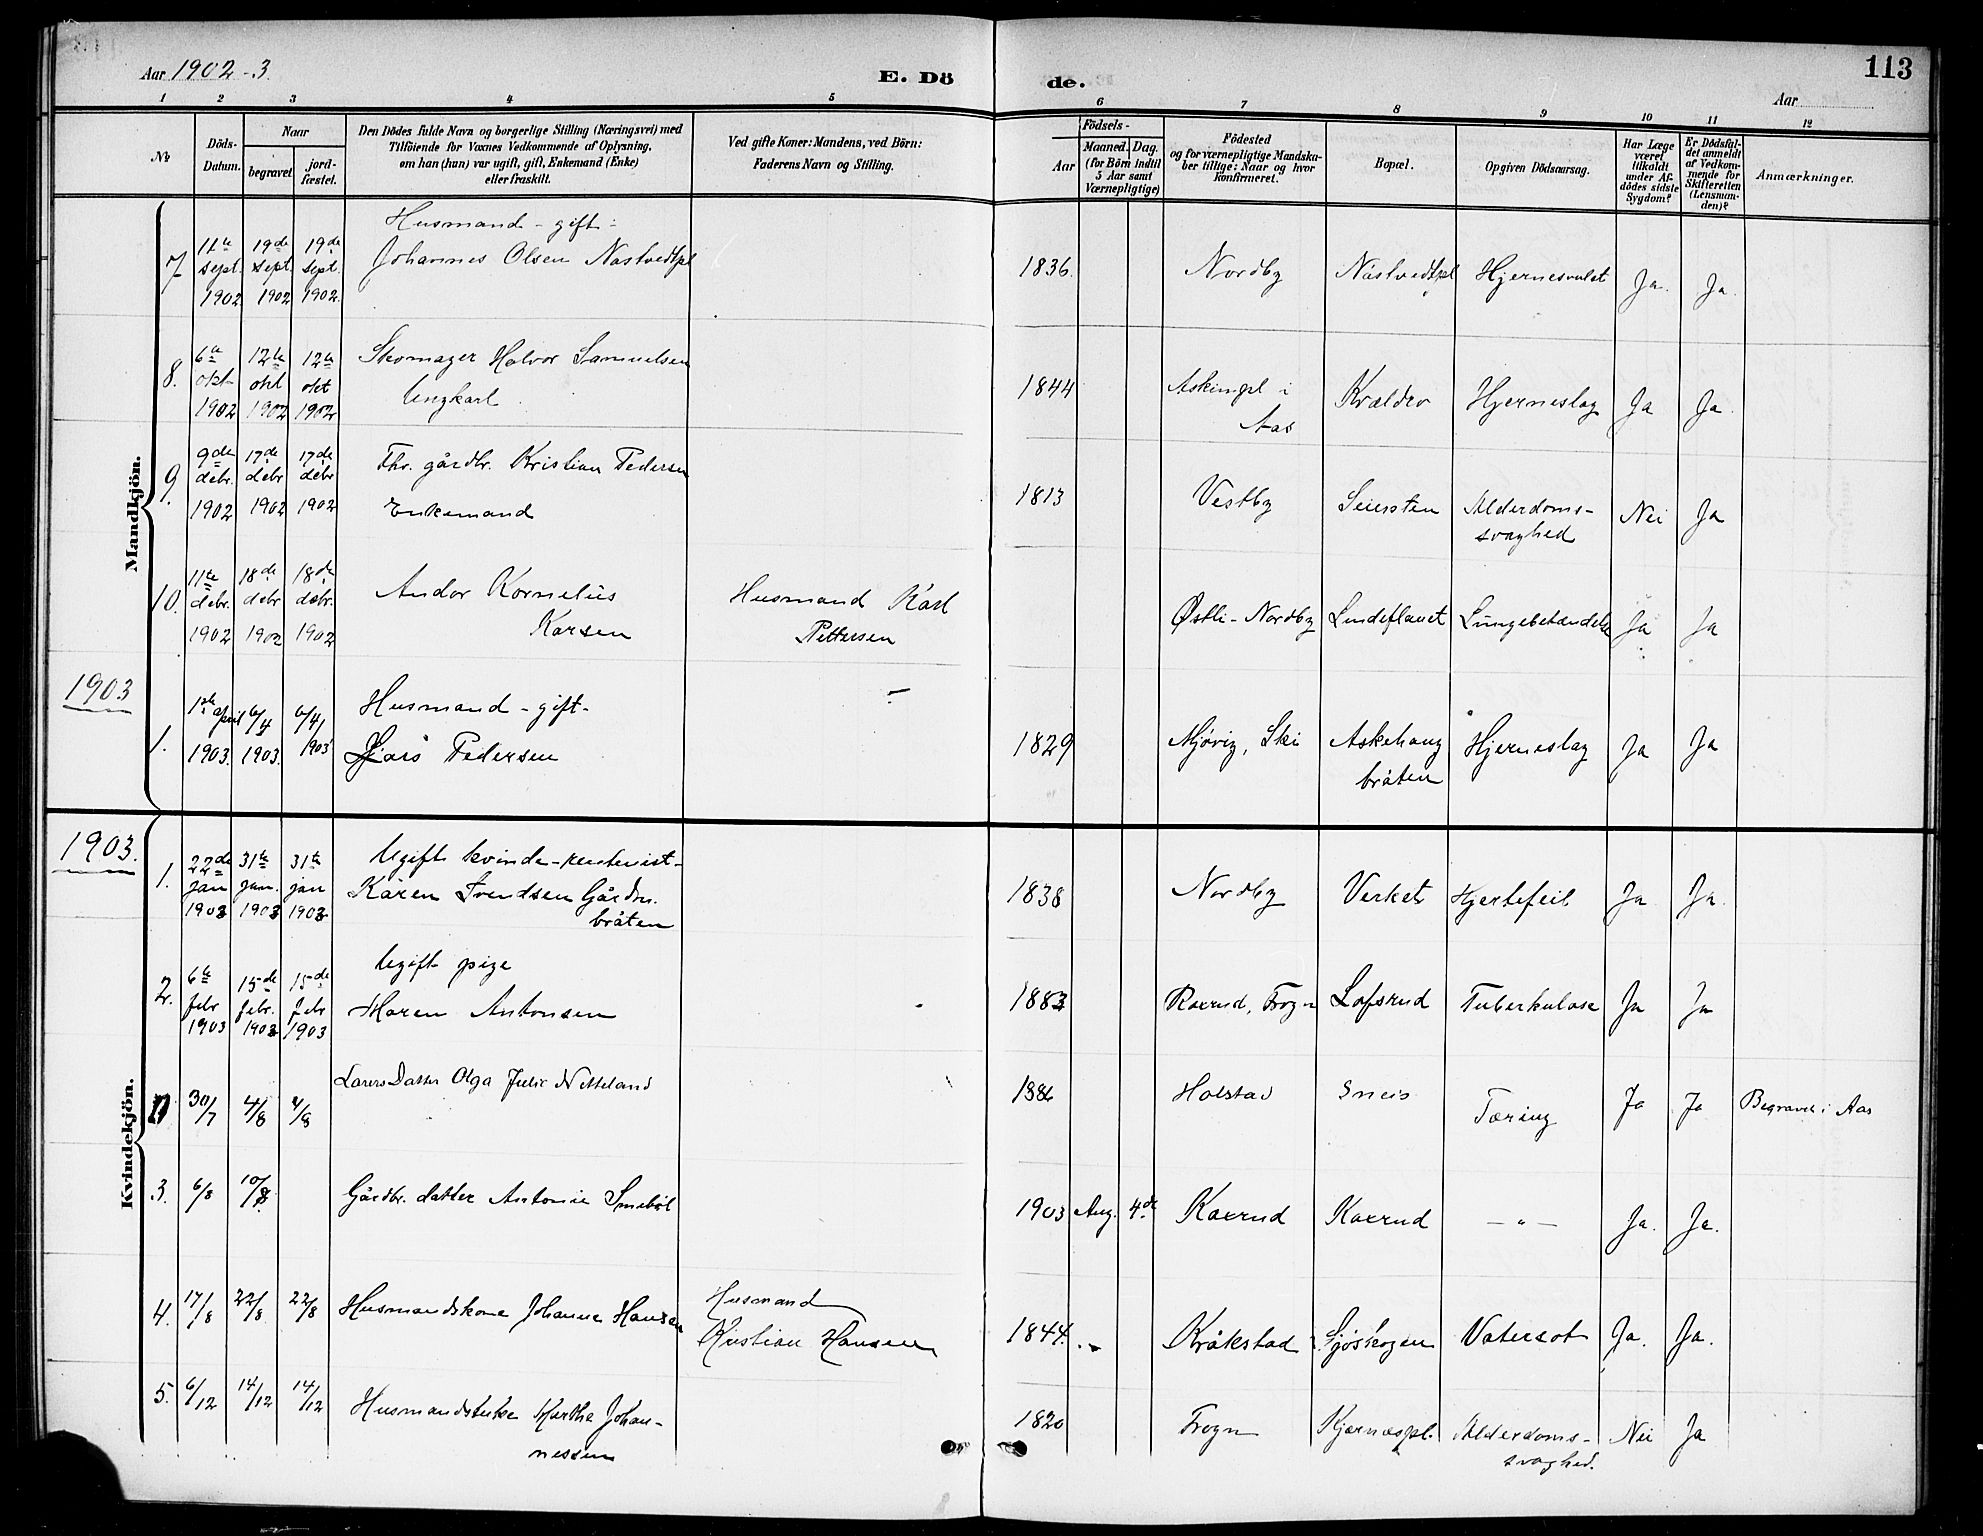 Aar 1902-3.
E. Dö
de.
113
Aar
1 2 3 4 5 6 7 8 9 10 11 12
No
Döds-Datum.
Naar
begravet
jord-fæstet.
Den Dödes fulde Navn og borgerlige Stilling (Næringsvei) med
Tilföiende for Voxnes Vedkommende af Oplysning,
om han (hun) var ugift, gift, Enkemand (Enke)
eller fraskilt.
Ved gifte Koner: Mandens, ved Börn:
Faderens Navn og Stilling.
Födsels-
Aar
Maaned. Dag.
(for Börn indtil
5 Aar samt
Værnepligtige)
Födested
og for værnepligtige Mandska-
ber tillige: Naar og hvor
konfirmeret.
Bopæl.
Opgiven Dödsaarsag.
Har Læge
været
tilkaldt
under Af-
dödes sidste
Sygdom?
Er Dödsfal-
det anmeldt
af Vedkom-
mende for
Skifteretten
(Lensman-
den)?
Anmærkninger.
Mandkjön.
7 11te sept. 1902 19de sept. 1902 19de sept. 1902.
Husmand - gift -
Johannes Olsen Nastvedtpl
1836. Nordby Nastvedtpl Hjernesvulst Ja. Ja.
8. 6te okt 1902 12te okt 1902 12te okt 1902
Skomager Halvor Samuelsen
Ungkarl.
1844 Askimpl i Aas Kroldro Hjerneslag Ja Ja.
9. 9de debr. 1902 17de debr 1902 17de debr 1902
Fhr. gårdbr. Kristian Pedersen
Enkemand
1813 Vestby Seiersten Alderdoms-
svaghed Nei Ja
10. 11te debr. 1902 18de debr 1902 18de debr. 1902
Andor Kornelius
Karsen
Husmand Karl
Pettersen
Østli-Nordby Lindeflauet Lungebetændelse Ja Ja
1903
1. 1ste april 1903. 6/4 1903. 6/4 1903
Husmand - gift -
Lars Pedersen
1829 Mjøvig, Ski Askehaug
bråten Hjerneslag Ja Ja
Kvindekjön.
1903.
1. 22de jan 1903 31te jan. 1903 31te jan 1903
Ugift kvinde -
Karen Svendsen Gårdsn.
bråten
1838 Nordby Verket Hjertefeil Ja Ja.
2. 6te febr 1903 15de febr. 1903 15de febr 1903
Ugift pige
Maren Antonsen
1883 Roxrud, Frogn Lofsrud Tuberkulose Ja Ja
30/7 4/8 4/8
Lærers Datter Olga Julie Netteland
1886 Holstad Sneis Tæring Ja Ja Begravet i Aas
3. 6/8 10/8
Gårdbr. datter Antonie Smebøl
1903 Aug. 4de Kaxrud Kaxrud — " — Ja. Ja.
4. 17/8 22/8 22/8
Husmandskone Johanne Hansen
Husmand
Kristian Hansen
1844. Kråkstad Sjøskogen Vatersot Ja. Ja.
5. 6/12 14/12 14/12
Husmandsenke Marthe Johan-
nessen
1820 Frogn Kjærnæspl. Alderdoms-
svaghed. Nei Ja